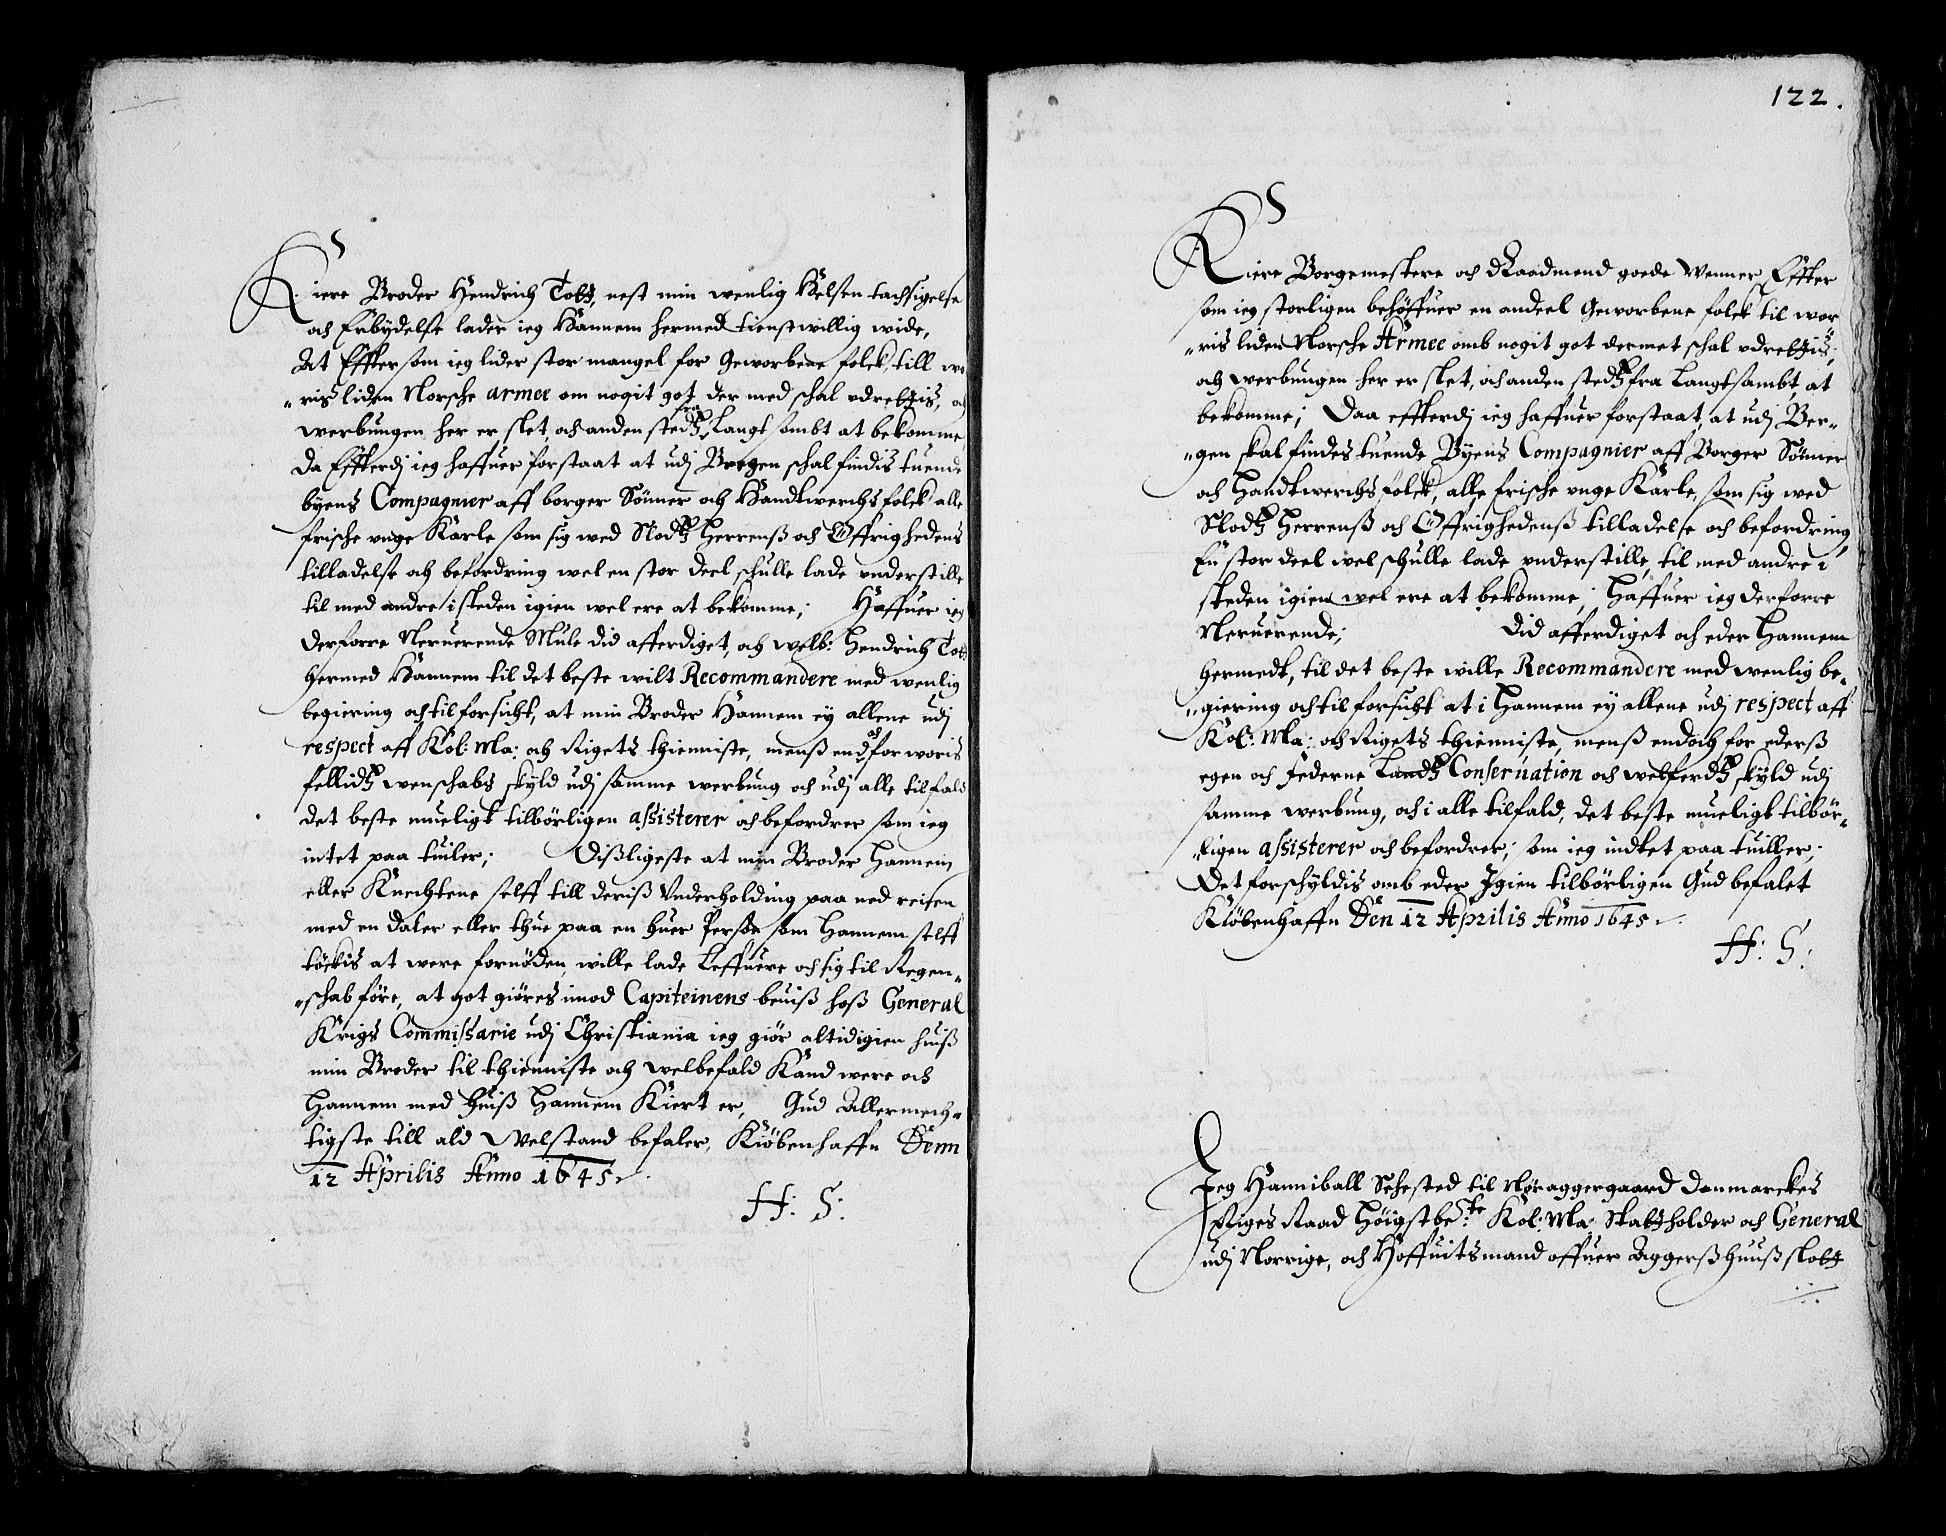 Kiere Broder Hendrich Tott, nest min wenlig Helsen tachsigelse
och Erbydelse lader ieg Hannem hermed tienstwillig wide,
At Effter som ieg lider stor mangel for Geworbene folck, till wo
"ris liden Norsche armee om nogit got der med schal vdrettis, och
werbungen her er slet, och anden stedtz fra Langt sombt at bekomme
Da Effterdj ieg haffuer forstaat at udj Bregen schal findis tuende
byens Compagnier aff borger Sönner och Handtwerchs folck alle
frische vnge Karle som sig wed Slodtz Herrenß och Öffrighedens
tilladelse och befordring wel en stor deel schulle lade vnderstille
til med andre i steden igien wel ere at bekomme; Haffuer ieg
derforre Neruerende Mule did afferdiget, och welb: Hendrich Tott
hermed Hannem til det beste wilt Recommandere med wenlig
begiering och tilforsicht, at min Broder Hannem ey allene udj
respect aff Kol: Ma: och Rigets thienniste, menß end och for woris
fellidtz wenschabs skyld udj samme werbung och udj alle tilfald
det beste mueligt tilbörligen assisterer och befordrer som ieg
intet paa tuiler; Dißligeste at min Broder Hannem
eller Knechtene selff till deriß Vnderholding paa ned reisen
med en daler eller thue paa en huer Person som Hannem selff
töckis at were fornöden, wille lade Leffuere och sig til Regen„
„schab före, at got giöres imod Capiteinens beuiß hoß General
Krigs Commissarie udj Christiania ieg giör altid igien huiß
min Broder til thienniste och welbefald Kand were och
Hannem med huiß Hannem Kiert er, Gud Allermech„
tigste till ald Velstand befaler, Kiöbenhaffn Denn
12 Aprilis Anno 1645.
H: S:
122.
Kiere Borgemestere och Raadmend goede Wenner Effter
som ieg storligen behöffuer en andeel Geworbene folck til wor
„ris liden Norsche Armee omb nogit got dermet schal vdrettis;
och werbungen her er slet, och anden stedtz fra Langtsambt, at
bekomme; Daa effterdj ieg haffuer forstaat, at udj Ber„
„gen skal findes tuende Byens Compagnier aff Borger Sönner
och Handtwerchs folck, alle frische vnge Karle, som sig wed
Slodtz Herrenß och Öffrighedenß tilladelse och befordring
En stor deel wel schulle lade vnderstille, til med andre i
steden igien wel ere at bekomme; Haffuer ieg derforre
Neruerende; Did afferdiget och eder Hannem
hermedt, til det beste wille Recommandere med wenlig be„
„giering och tilforsicht at i Hannem ey allene udj respect aff
Kol: Ma: och Rigets thienniste, menß endoch for ederß
egen och Federne Landtz Conseruation och welferdtz skyld udj
samme werbung, och i alle tilfald, det beste mueligt tilbör„
„ligen assisterer och befordrer; som ieg indtet paa tuiller;
Det forschyldis omb eder Igien tilbörligen Gud befalet
Kiöbenhaffn Den 12 Aprilis Anno 1645.
H: S:
Jeg Hanniball Sehested til Nöraggergaard Danmarckes
Riges Raad Höigstbe:te Kol: Ma: Statholder och General
udj Norrige, och Höffuitsmand offuer Aggerßhuuß slott